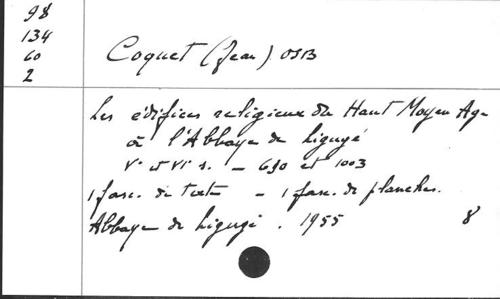 98
134
60
2
Coquet (Jean) OSB
Les édifices religieux du Haut Moyen Age
à l'Abbaye de Ligugé
Vᵉ et VIᵉ s. - 690 et 1003
1 fasc. de texte - 1 fasc. de planches.
Abbaye de Ligugé. 1955 8